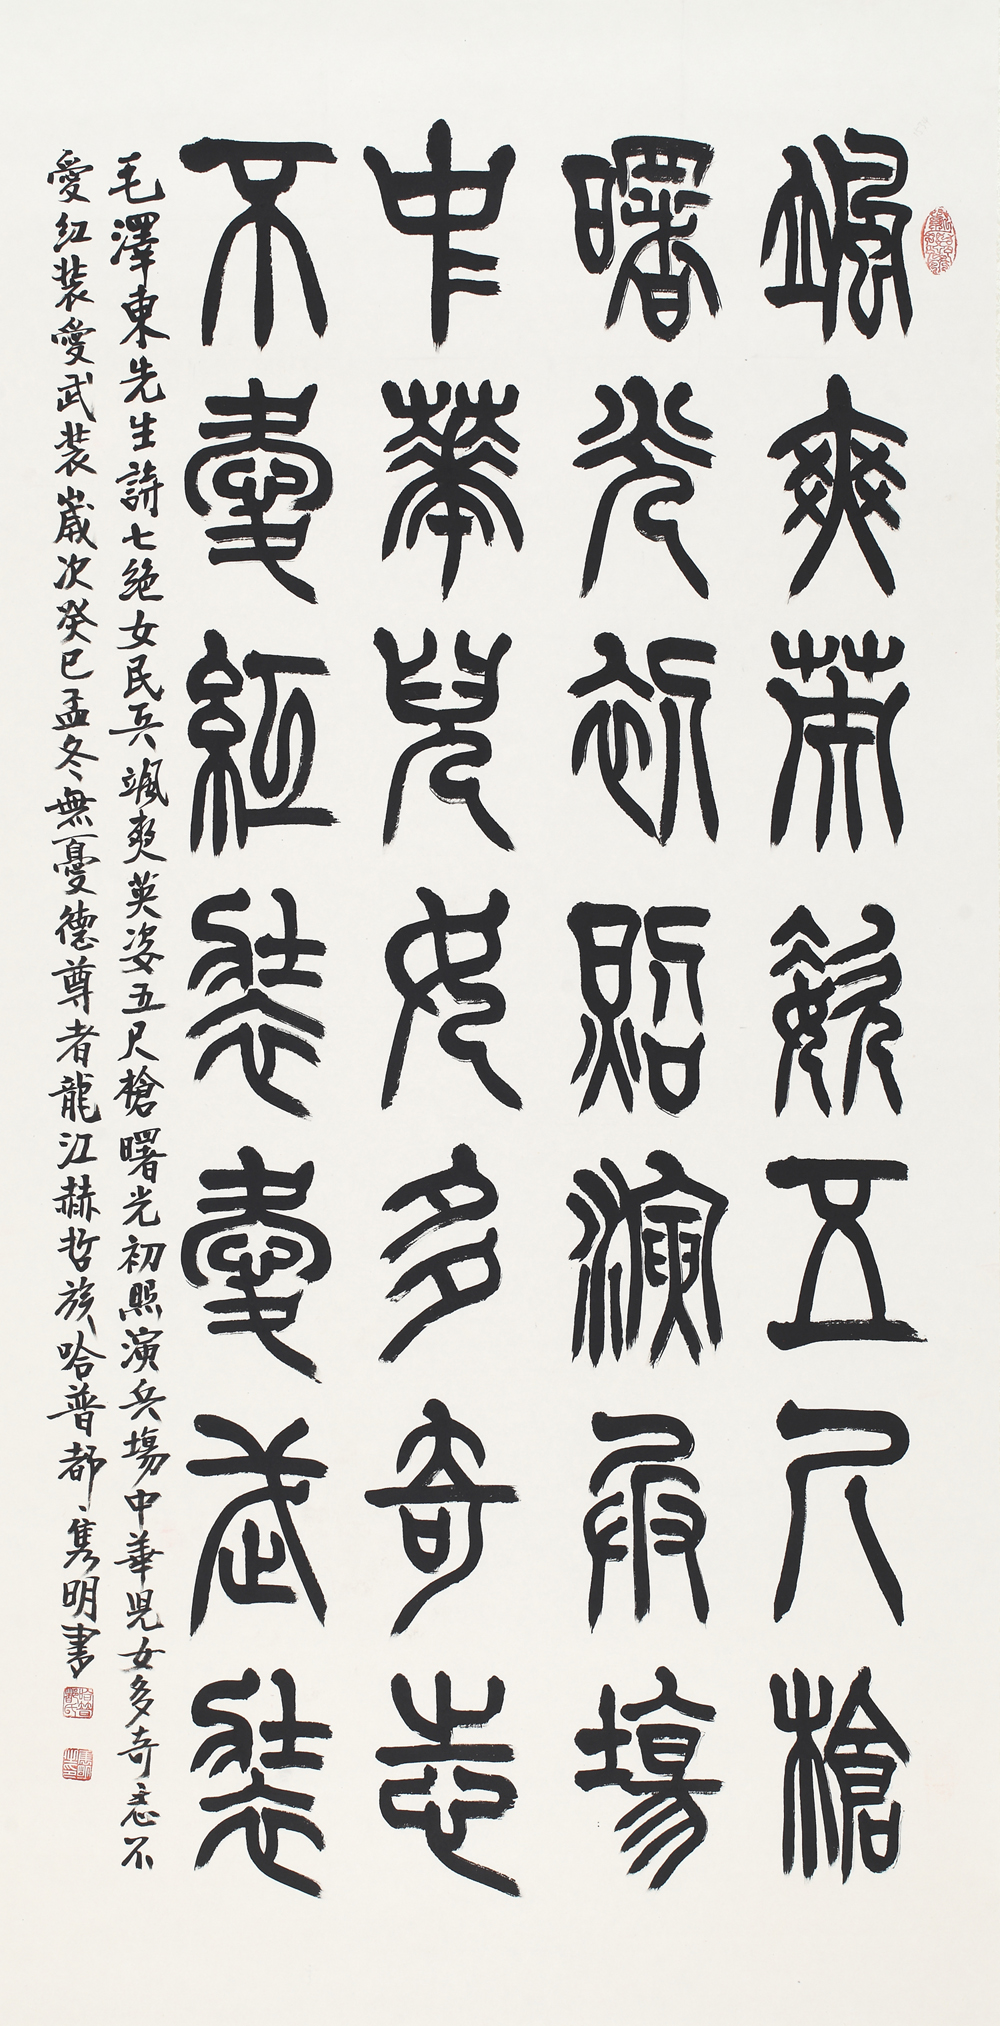 颯爽英姿五尺槍
曙光初照演兵場
中華兒女多奇志
不愛紅裝愛武裝
毛澤東先生詩七絕女民兵颯爽英姿五尺槍曙光初照演兵場中華児女多奇志不
愛紅裝愛武裝歲次癸巳孟冬無憂德尊者龍江赫哲族哈普都、隽明書